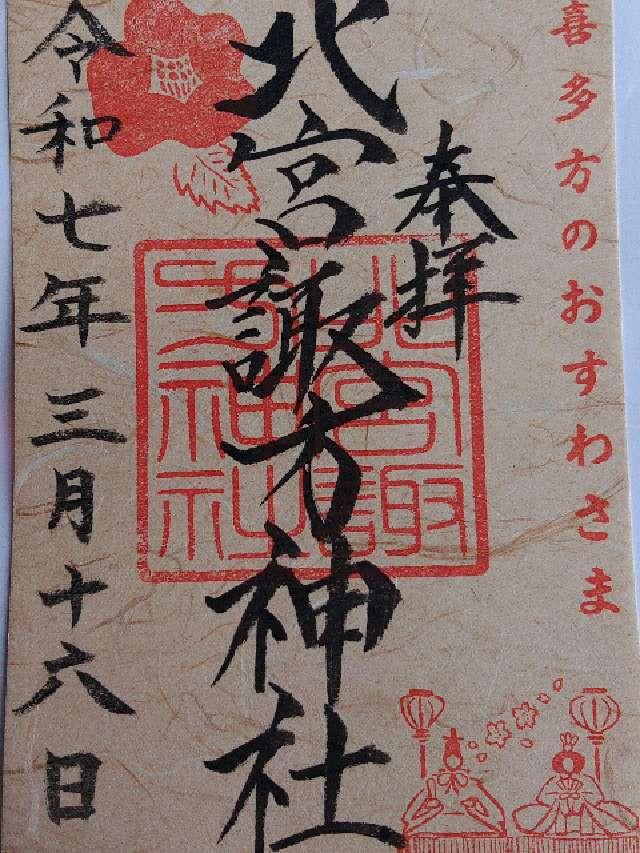 喜多方のおすわさま
奉拝
北宮諏方神社
北宮諏方神社
令和七年三月十六日